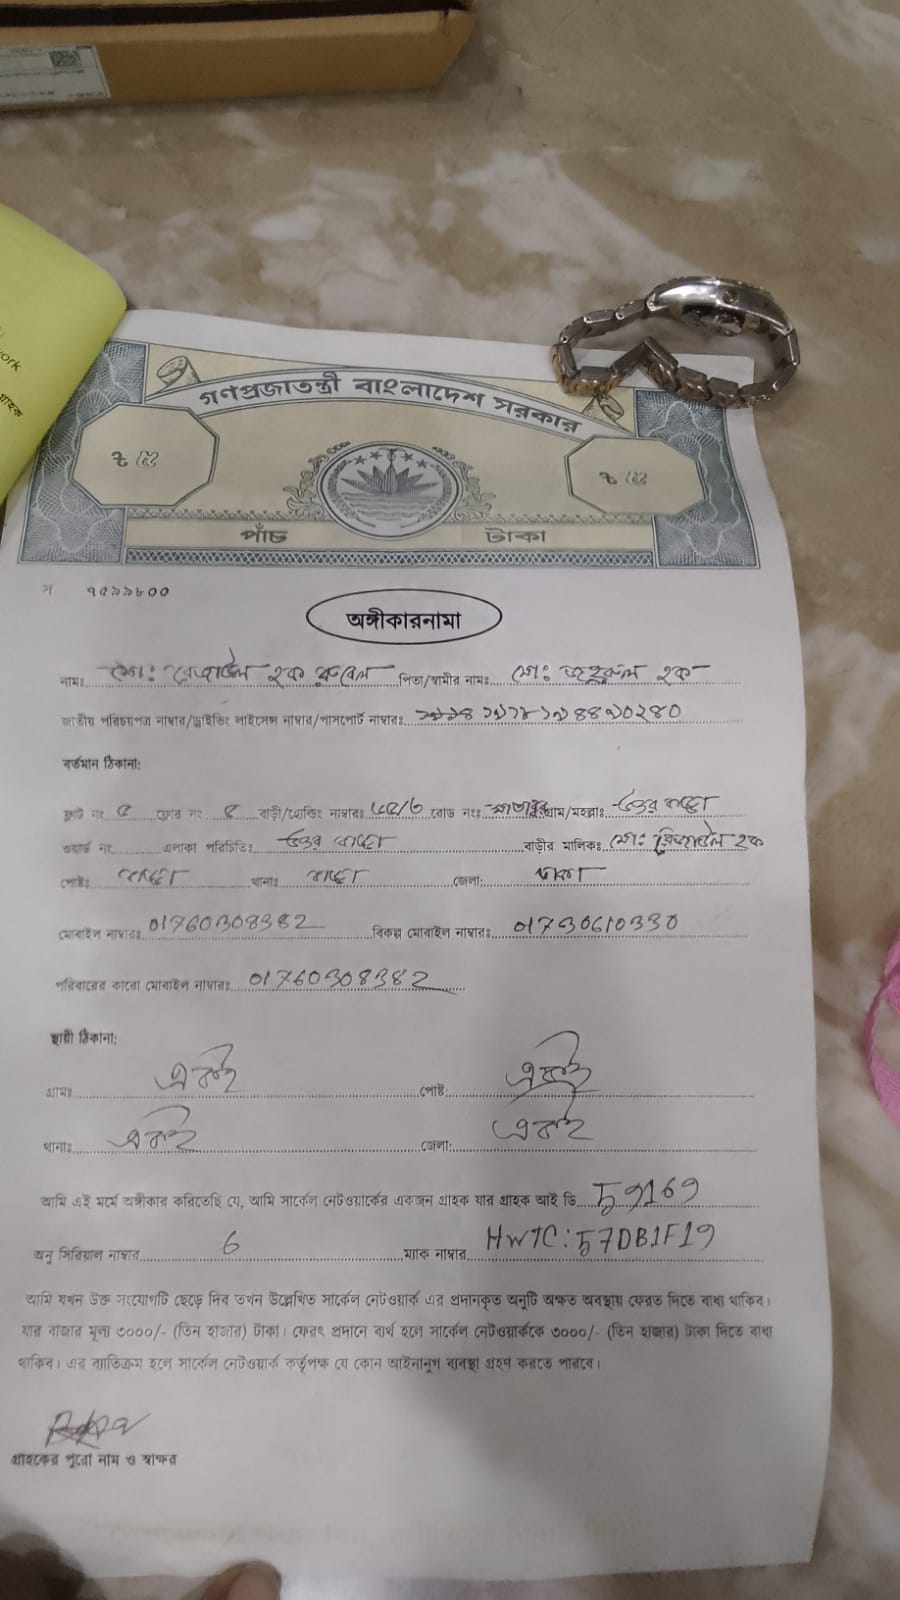 গণপ্রজাতন্ত্রী বাংলাদেশ সরকার
পাঁচ টাকা
৭৫৯৯৮০০
অঙ্গীকারনামা
নাম: মো: রেজাউল হক রুবেল পিতা/স্বামীর নাম: মো: জহুরুল হক
জাতীয় পরিচয়পত্র নাম্বার/ড্রাইভিং লাইসেন্স নাম্বার/পাসপোর্ট নাম্বারঃ
বর্তমান ঠিকানা:
ফ্লাট নং ৫ ফ্লোর নং ৫ বাড়ী/হোল্ডিং নাম্বারঃ রোড নংঃ গ্রাম/মহল্লাঃ উত্তর বাড্ডা
ওয়ার্ড নং এলাকা পরিচিতিঃ উত্তর বাড্ডা বাড়ীর মালিকঃ মো: রেজাউল হক
পোষ্টঃ বাড্ডা থানাঃ বাড্ডা জেলা: ঢাকা
মোবাইল নাম্বারঃ 01760308382 বিকল্প মোবাইল নাম্বারঃ 01730610330
পরিবারের কারো মোবাইল নাম্বারঃ 01760308382
স্থায়ী ঠিকানা:
গ্রামঃ একই পোষ্ট: একই
থানাঃ একই জেলা: একই
আমি এই মর্মে অঙ্গীকার করিতেছি যে, আমি সার্কেল নেটওয়ার্কের একজন গ্রাহক যার গ্রাহক আই ডি 59169
অনু সিরিয়াল নাম্বার 6 ম্যাক নাম্বার HWTC:57DB1F19
আমি যখন উক্ত সংযোগটি ছেড়ে দিব তখন উল্লেখিত সার্কেল নেটওয়ার্ক এর প্রদানকৃত অনুটি অক্ষত অবস্থায় ফেরত দিতে বাধ্য থাকিব।
যার বাজার মূল্য ৩০০০/- (তিন হাজার) টাকা। ফেরৎ প্রদানে ব্যর্থ হলে সার্কেল নেটওয়ার্ককে ৩০০০/- (তিন হাজার) টাকা দিতে বাধ্য
থাকিব। এর ব্যতিক্রম হলে সার্কেল নেটওয়ার্ক কর্তৃপক্ষ যে কোন আইনানুগ ব্যবস্থা গ্রহণ করতে পারবে।
গ্রাহকের পুরো নাম ও স্বাক্ষর
গ্রাহক